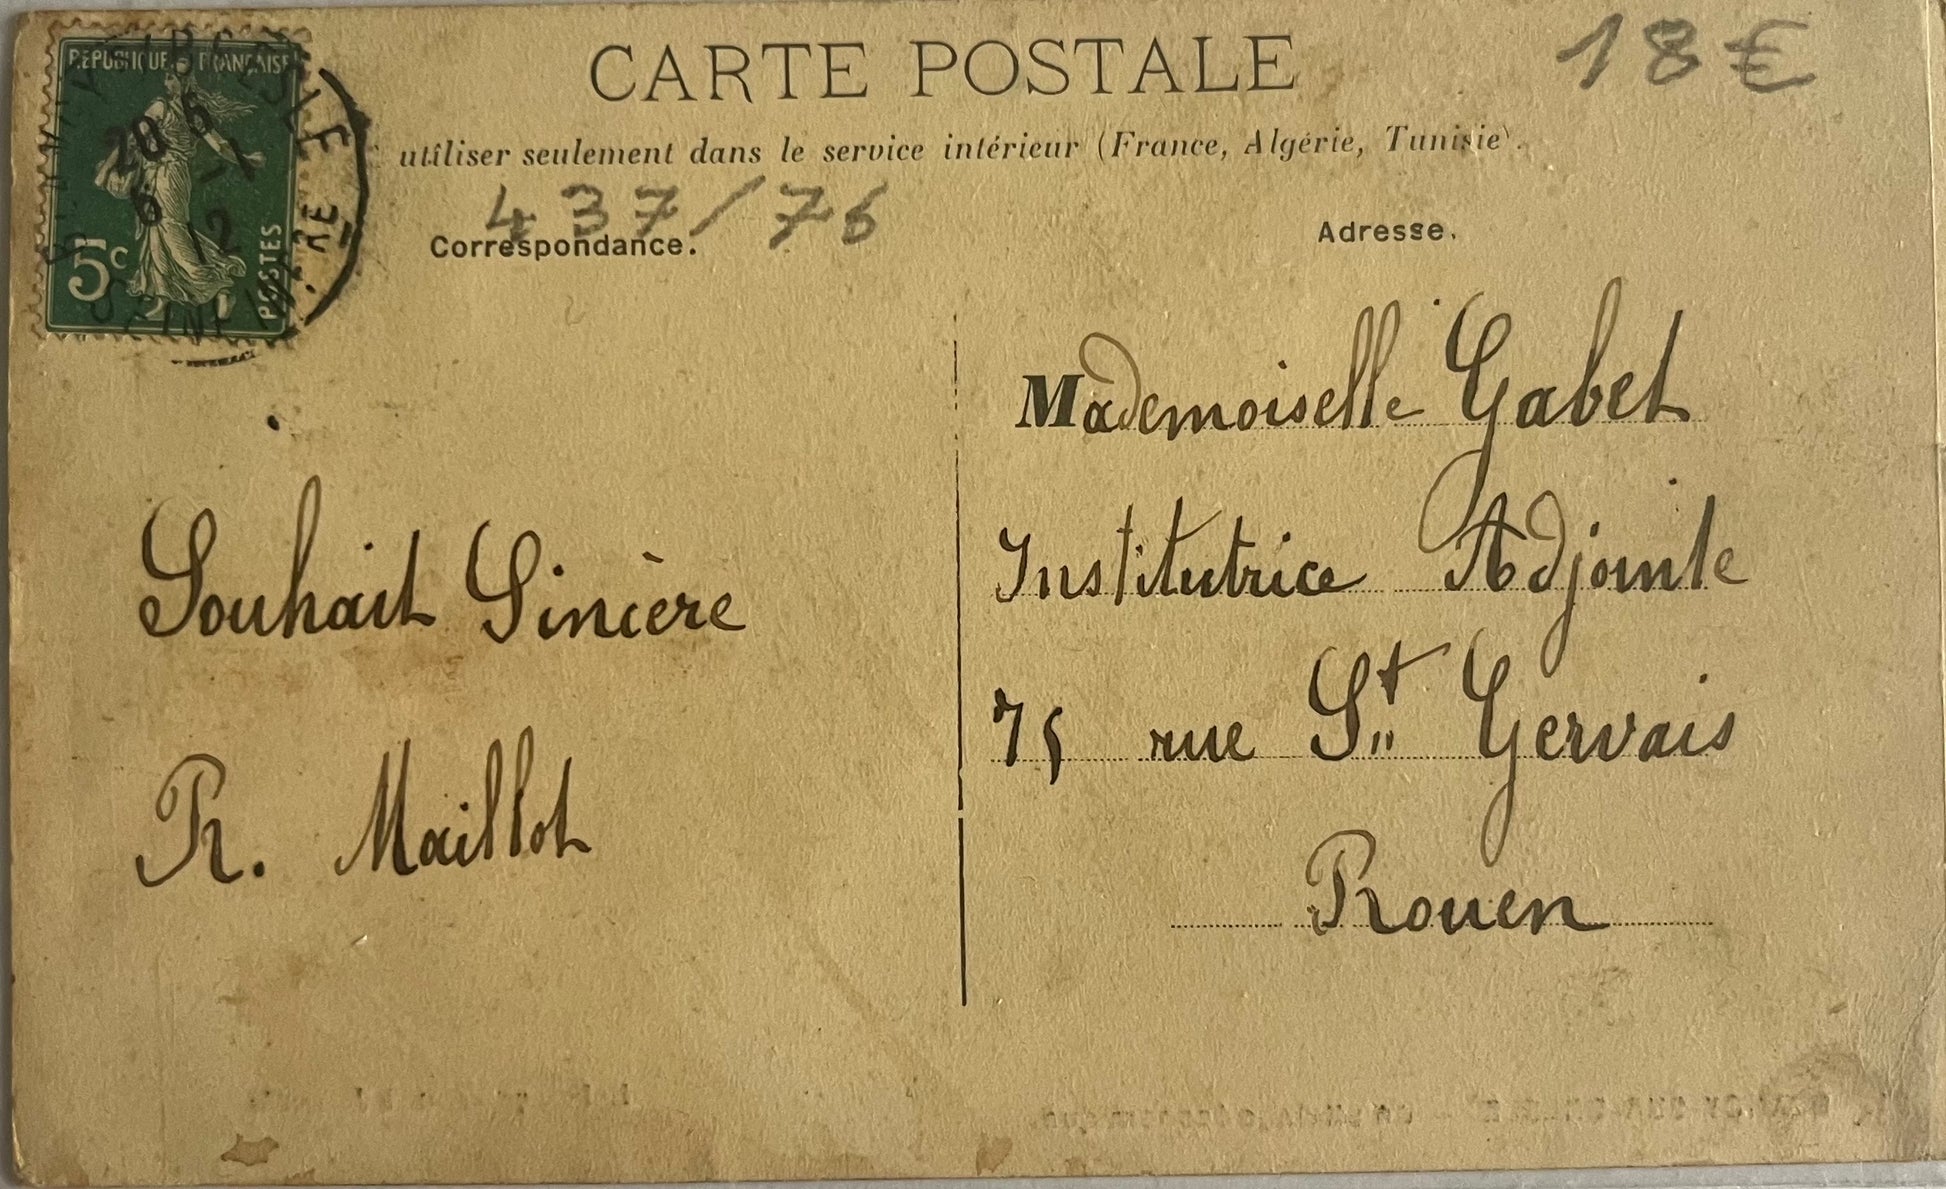 REPUBLIQUE FRANÇAISE
5c
POSTES
20
6
12
CARTE POSTALE
18€
utiliser seulement dans le service intérieur (France, Algérie, Tunisie).
437/76
Correspondance.
Adresse.
Souhait Sincère
R. Maillot
Mademoiselle Gabet
Institutrice Adjointe
75 rue St Gervais
Rouen